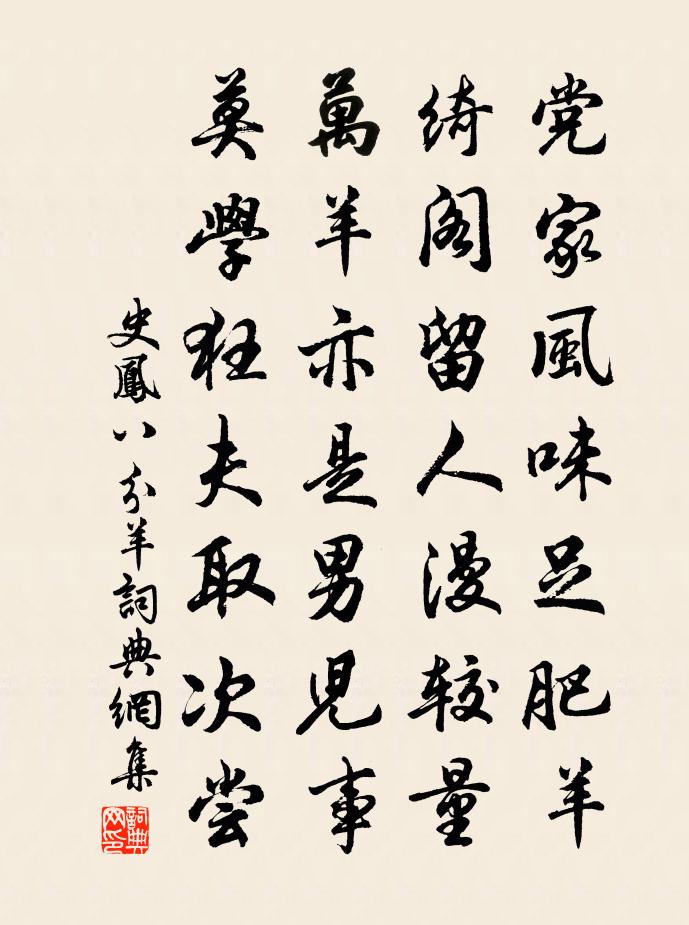 党家風味足肥羊
綺閣留人漫較量
萬羊亦是男児事
莫學狂夫取次尝
史鳳八分羊詞典網集
詞典网印